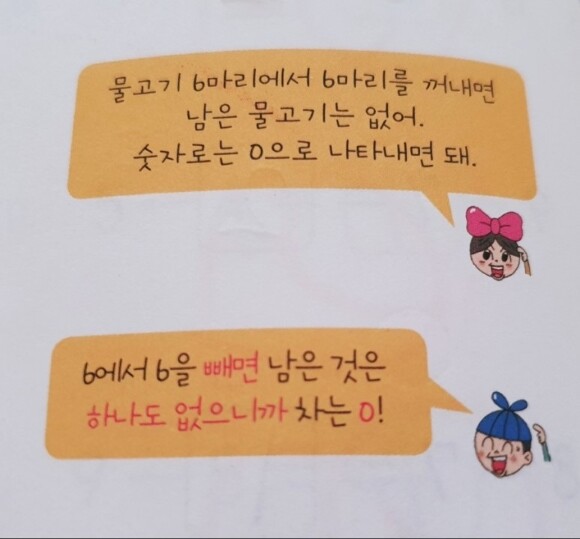 물고기 6마리에서 6마리를 꺼내면
남은 물고기는 없어.
숫자로는 0으로 나타내면 돼.
6에서 6을 빼면 남은 것은
하나도 없으니까 차는 0!